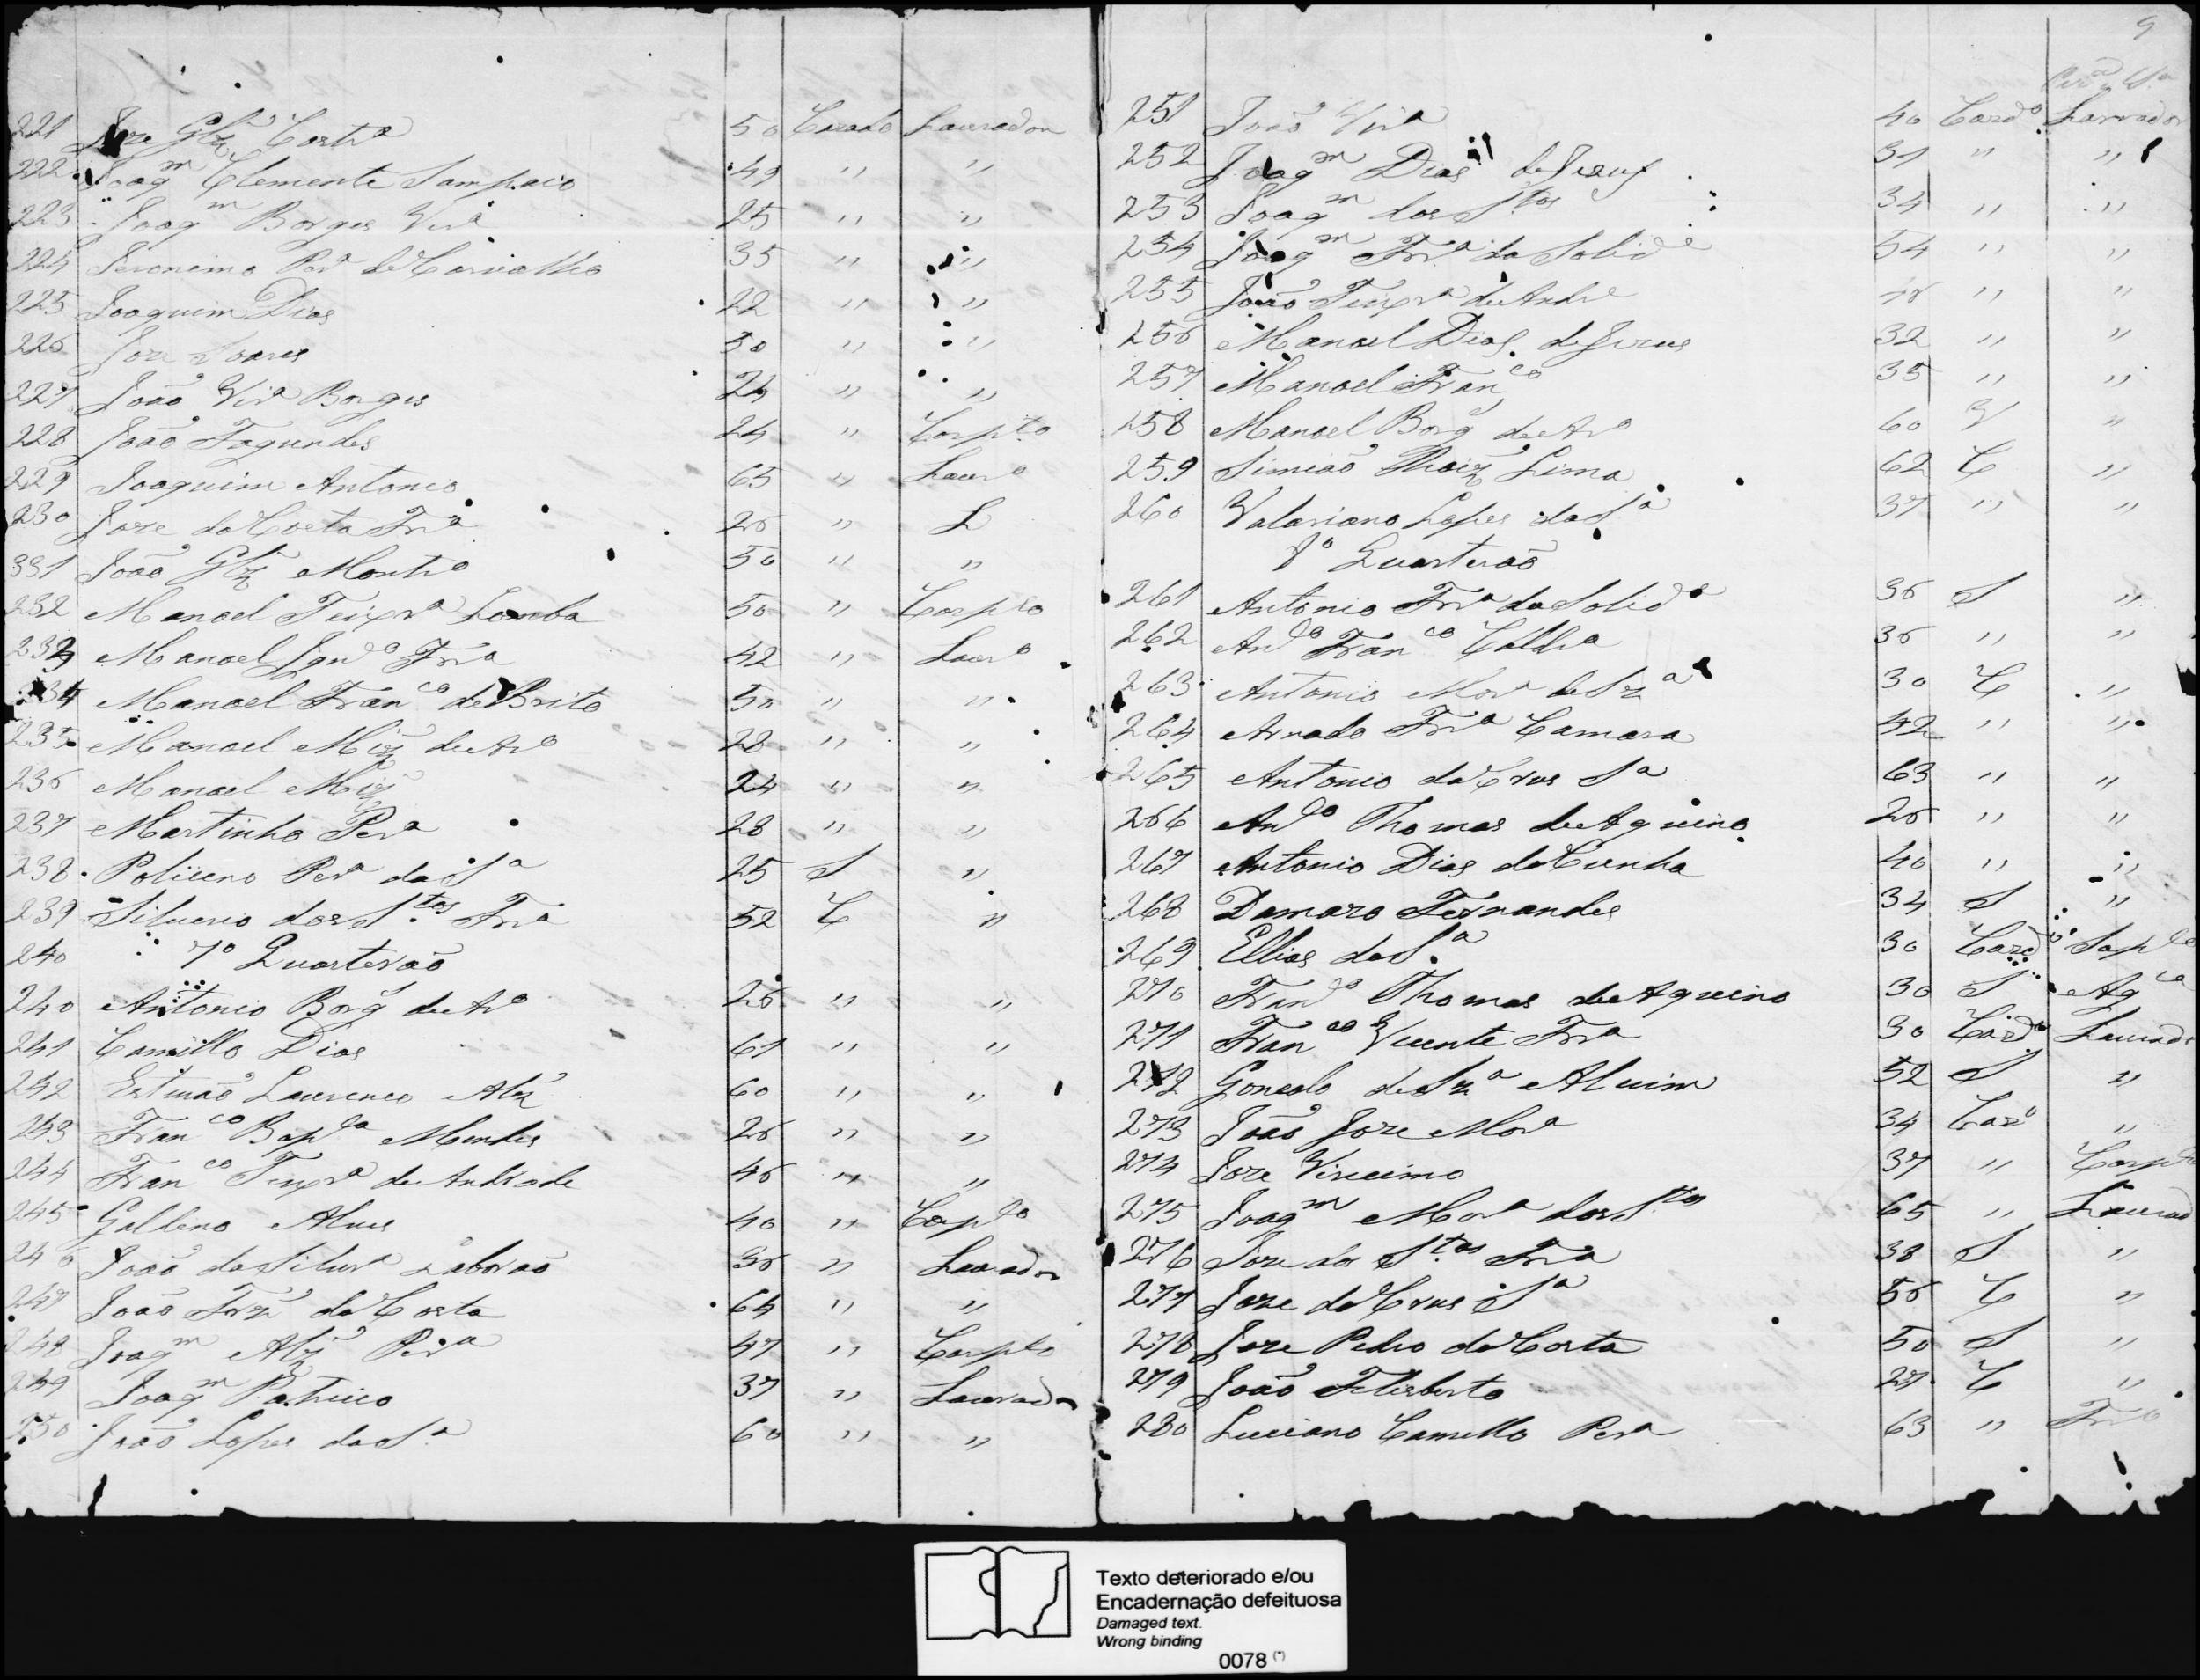 221 Joze Glz Costa 50 Cazado Lavrador
222 Joaqm Clemente Sampaio 49 " "
223 Joaqm Borges Vira 25 " "
224 Jeronimo Pera de Carvalho 35 " "
225 Joaquim Dias 22 " "
226 Joze Soares 30 " "
227 João Vira Borges 24 " "
228 João Fagundes 24 " Carpto
229 Joaquim Antonio 65 " Lavro
230 Joze da Costa Fra 26 " L
331 João Glz Montro 50 " "
232 Manoel Teixra Lomba 50 " Carpto
233 Manoel Ignco Fra 42 " Lavro
234 Manoel Franco de Brito 50 " "
235 Manoel Miz de Aro 28 " "
236 Manoel Miz 24 " "
237 Martinho Pera 28 " "
238 Policeno Pera da Sa 25 S "
239 Silverio dos Stos Fra 52 C "
240 7o Quarterão
240 Antonio Borg de Aro 26 " "
241 Camillo Dias 61 " "
242 Estevão Lourenco Alz 60 " "
243 Franco Bapta Mendes 26 " "
244 Franco Teixra de Andrade 46 " "
245 Galleno Alves 40 " Capto
246 João da Silvra 36 " Lavrador
247 João Frz da Costa 64 " "
248 Joaqm Alz Pera 47 " Carpto
249 Joaqm Patricio 37 " Lavrador
250 João Lopes da Sa 60 " "
9
251 João Vira 40 Cazdo Lavrador
252 Joaqm Dias de Jesus 31 " "
253 Joaqm dos Stos 34 " "
254 Joaqm Fra da Solide 54 " "
255 João Teixra de Andre " "
256 Manoel Dias de Jesus 32 " "
257 Manoel Franco 35 " "
258 Manoel Borg de Aro 60 V "
259 Simião Roiz Lima 62 C "
260 Valariano Lopes da Sa 37 " "
8o Quarterão
261 Antonio Fra da Solide 36 S "
262 Anto Franco Caldra 36 " "
263 Antonio Mora de Sza 30 C "
264 Arnado Fra Camara 42 " "
265 Antonio da Crus Sa 63 " "
266 Anto Thomas de Aquino 26 " "
267 Antonio Dias da Cunha 40 " "
268 Damazo Fernandes 34 S "
269 Ellias da Sa 30 Cazdo Sapto
270 Firmo Thomas de Aquino 30 S Aga
271 Franco Vicente Fra 30 Cazdo Lavrador
272 Goncalo de Sza Alvim 52 S "
273 João Joze Mora 34 Cazo "
274 Joze Virissimo 37 " Carpto
275 Joaqm Mora dos Stos 65 " Lavrad
276 Joze dos Stos Fra 38 S "
277 Joze da Crus Sa 56 C "
278 Joze Pedro da Costa 50 S "
279 João Felisberto 27 C "
280 Luciano Camillo Pera 63 " Fro
Texto deteriorado e/ou
Encadernação defeituosa
Damaged text.
Wrong binding
0078 (*)